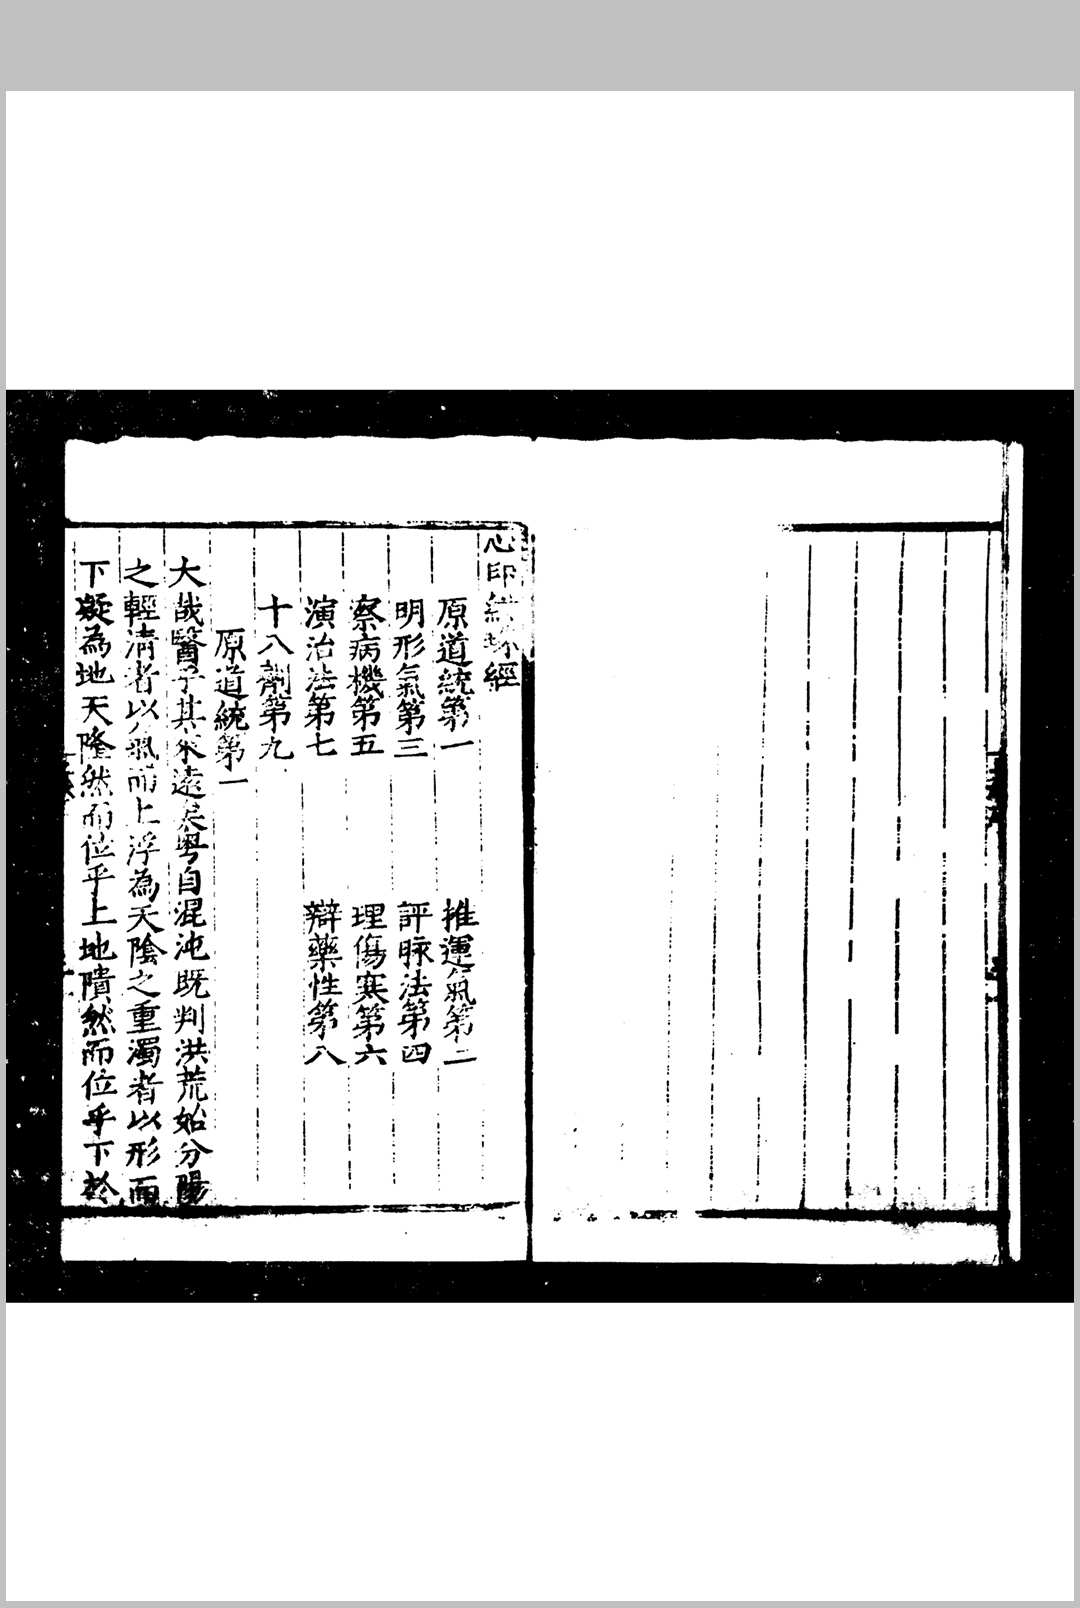 心印紺珠經
原道統第一 推運氣第二
明形氣第三 評脉法第四
察病機第五 理傷寒第六
演治法第七 辯藥性第八
十八劑第九
原道統第一
大哉醫乎其來遠矣粤自混沌既判洪荒始分陽
之輕清者以氣而上浮為天陰之重濁者以形而
下凝為地天隆然而位乎上地隤然而位乎下於